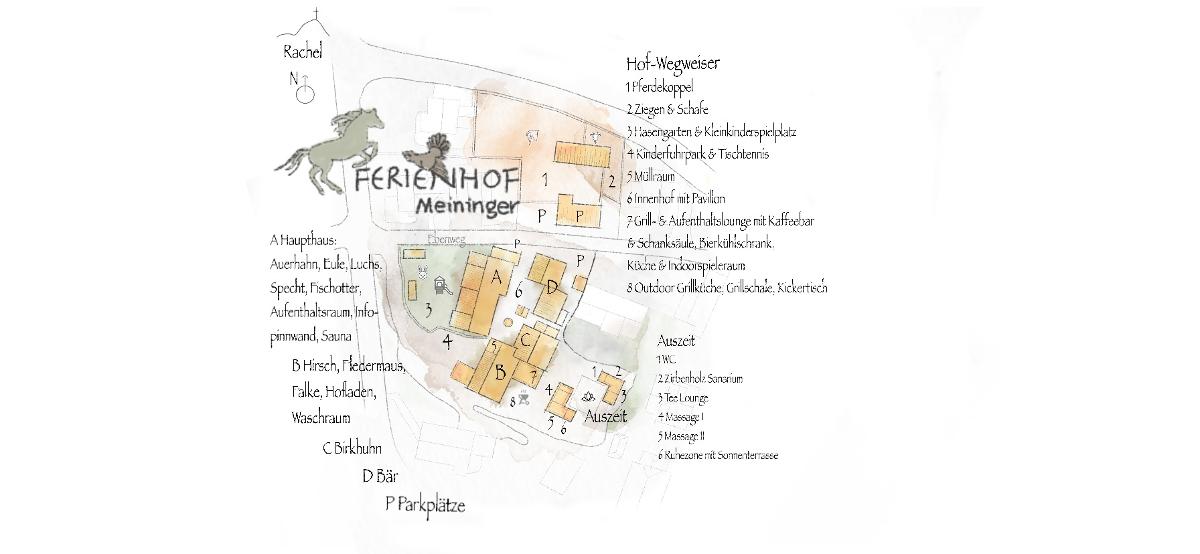 Rachel
N
FERIENHOF
Meininger
Hof-Wegweiser
1 Pferdekoppel
2 Ziegen & Schafe
3 Hasengarten & Kleinkinderspielplatz
4 Kinderfuhrpark & Tischtennis
5 Müllraum
6 Innenhof mit Pavillon
7 Grill- & Aufenthaltslounge mit Kaffeebar
& Schanksäule, Bierkühlschrank,
Küche & Indoorspieleraum
8 Outdoor Grillküche, Grillschale, Kickertisch
1
2
P
P
P
P
A
D
6
3
4
5
C
B
7
8
4
5
6
1
2
3
Auszeit
A Haupthaus:
Auerhahn, Eule, Luchs,
Specht, Fischotter,
Aufenthaltsraum, Info-
pinnwand, Sauna
B Hirsch, Fledermaus,
Falke, Hofladen,
Waschraum
C Birkhuhn
D Bär
P Parkplätze
Auszeit
1 WC
2 Zirbenholz Sanarium
3 Tee Lounge
4 Massage I
5 Massage II
6 Ruhezone mit Sonnenterrasse